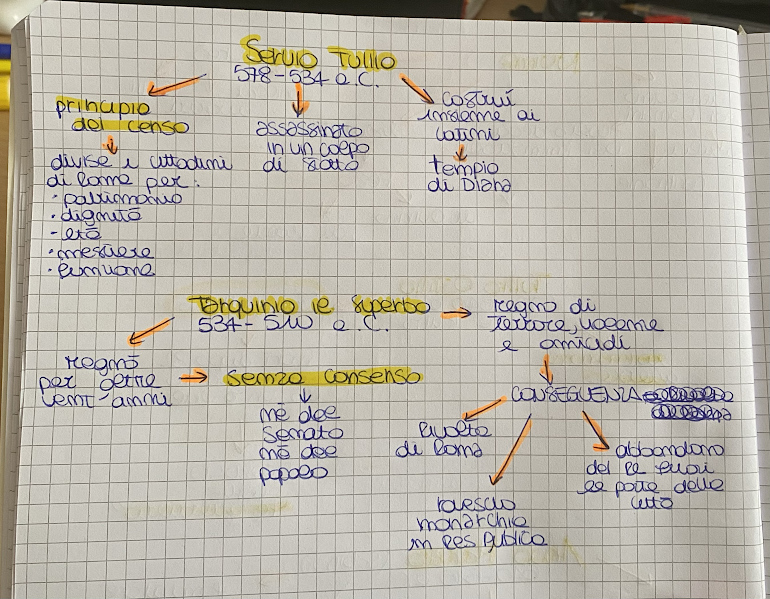 Servio Tullio
578-534 a.C.
principio
del censo
divise i cittadini
di Roma per:
·patrimonio
·dignità
-età
·mestiere
·funzione
assassinato
in un colpo
di stato
costruì
insieme ai
latini
tempio
di Diana
Tarquinio il superbo
534-510 a.C.
regno di
terrore, violenze
e omicidi
regnò
per oltre
vent'anni
senza consenso
né del
senato
né del
popolo
CONSEGUENZA
rivolta
di Roma
rovescio
monarchia
in Res Publica
abbandono
del re fuori
le porte della
città